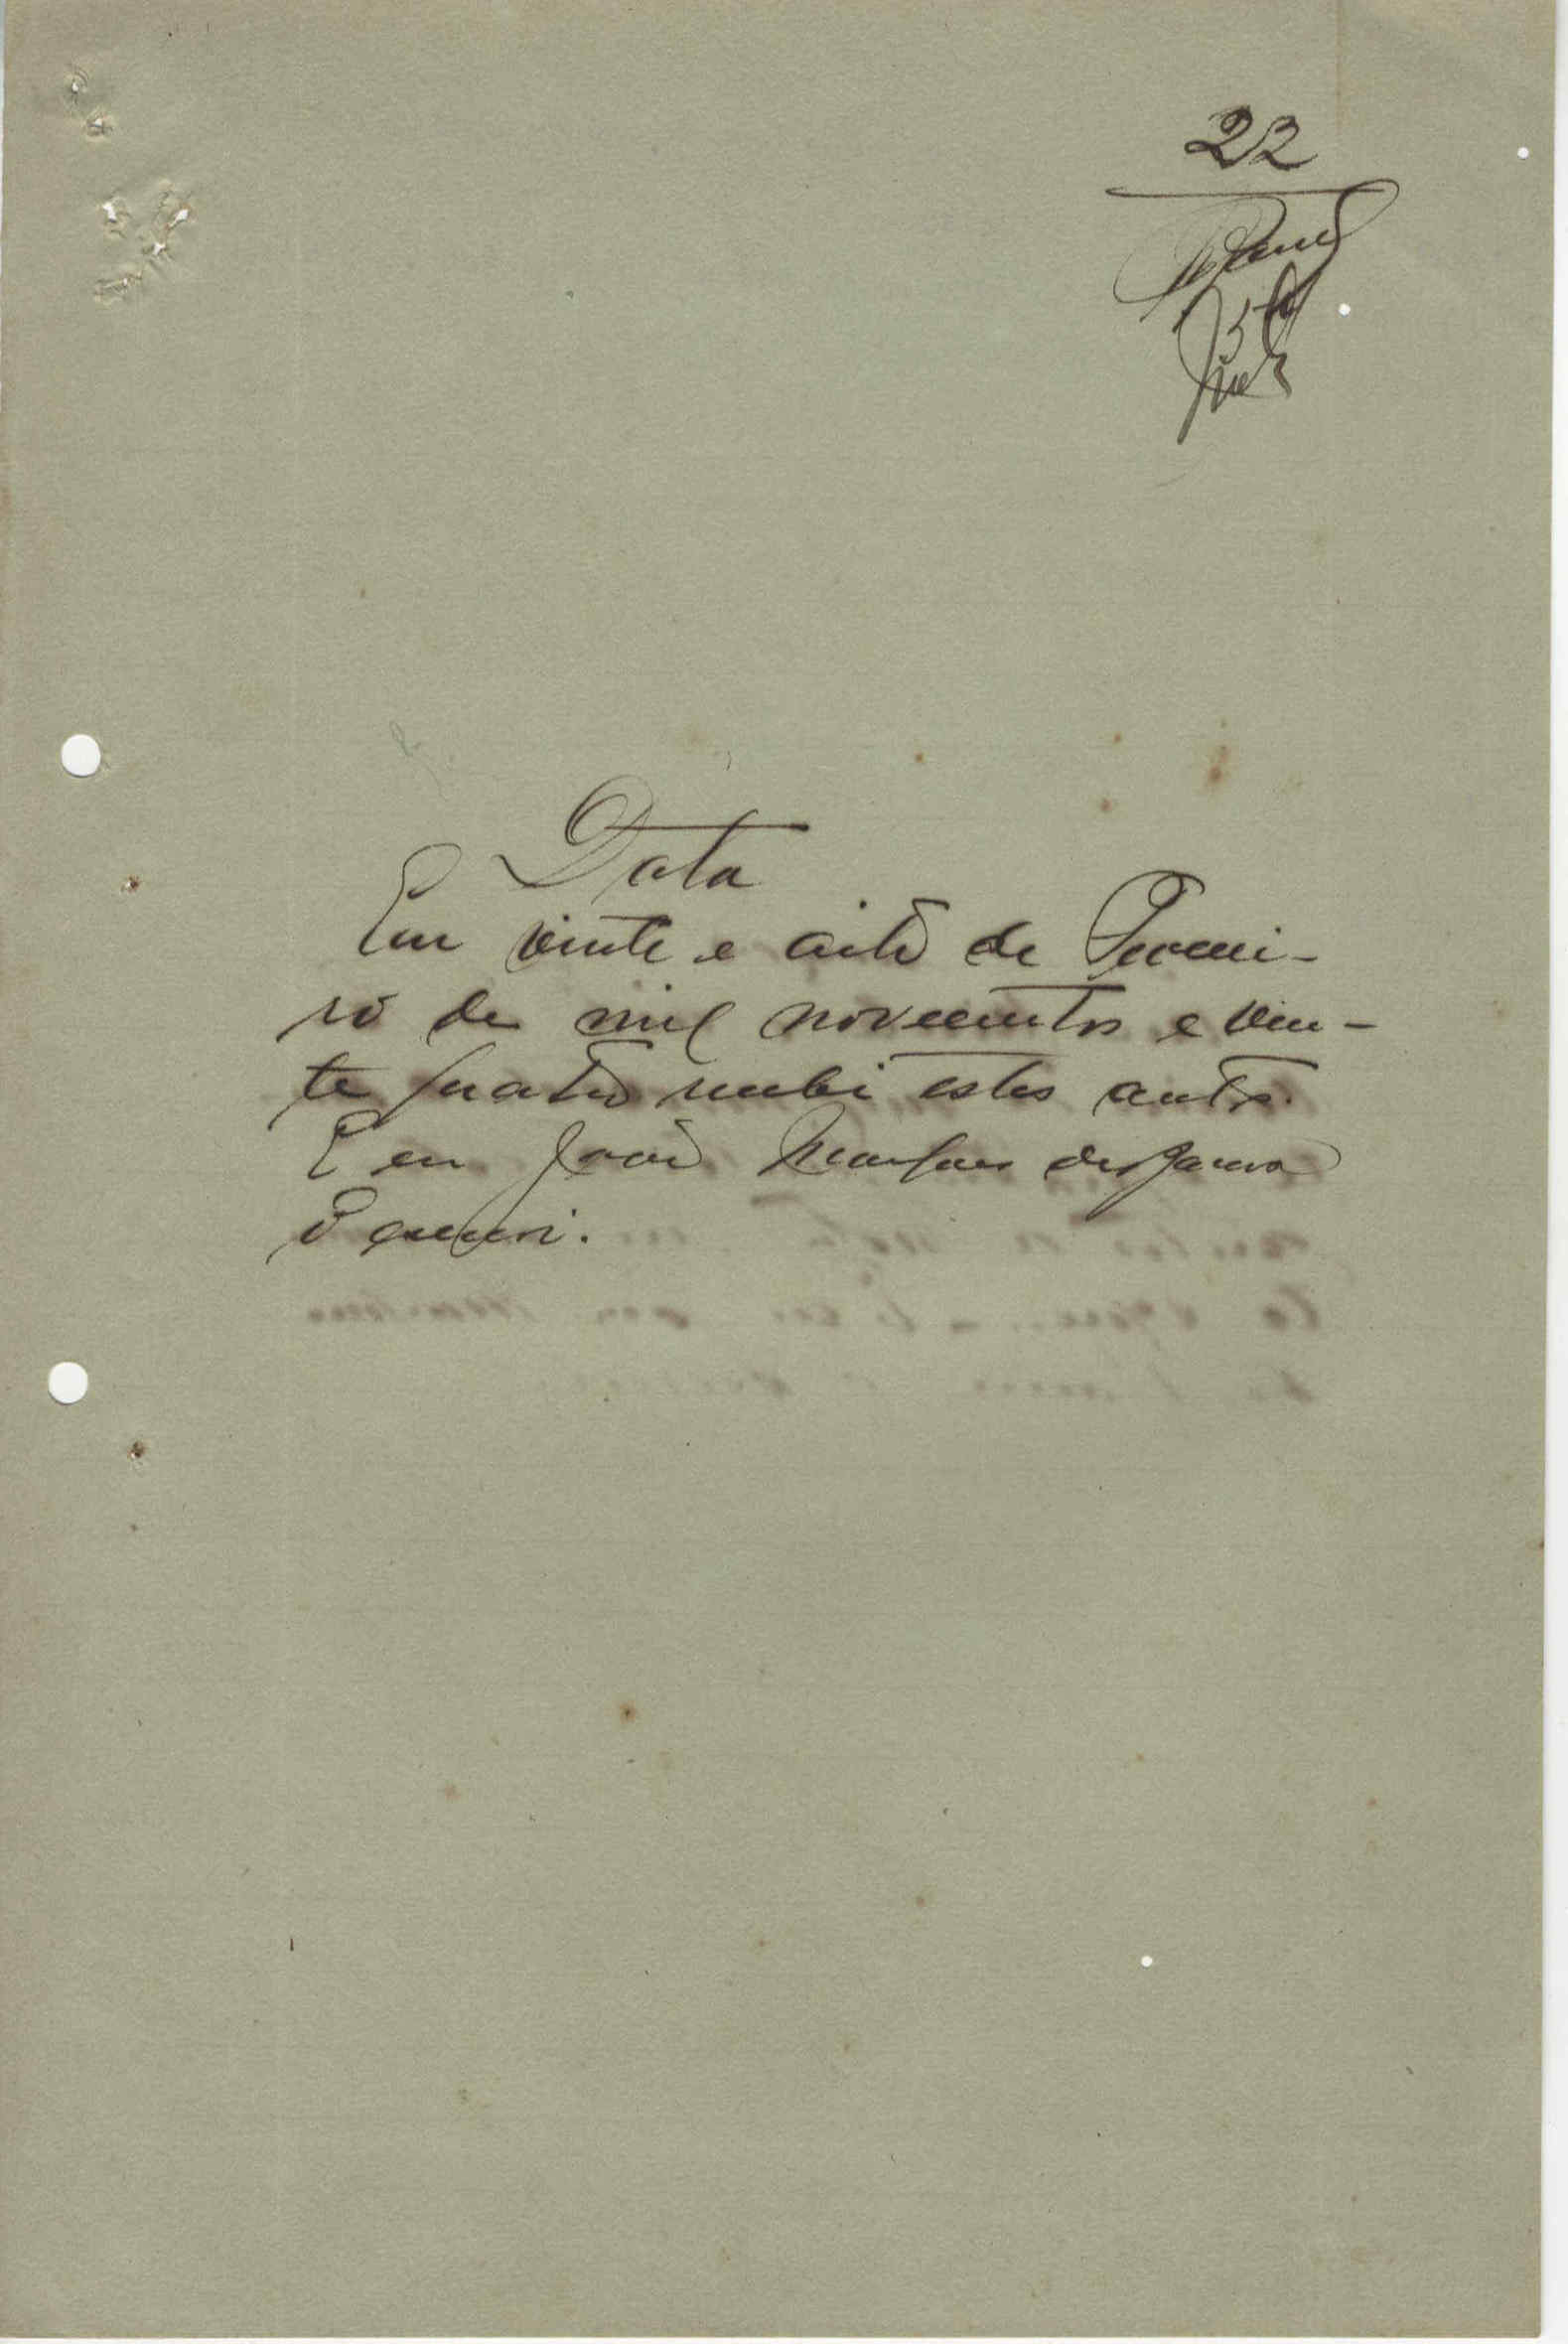 22
Data
Em vinte e oito de Feverei-
ro de mil novecentos e vin-
te quatro recebi estes autos.
E eu João Marques de
o escrevi.